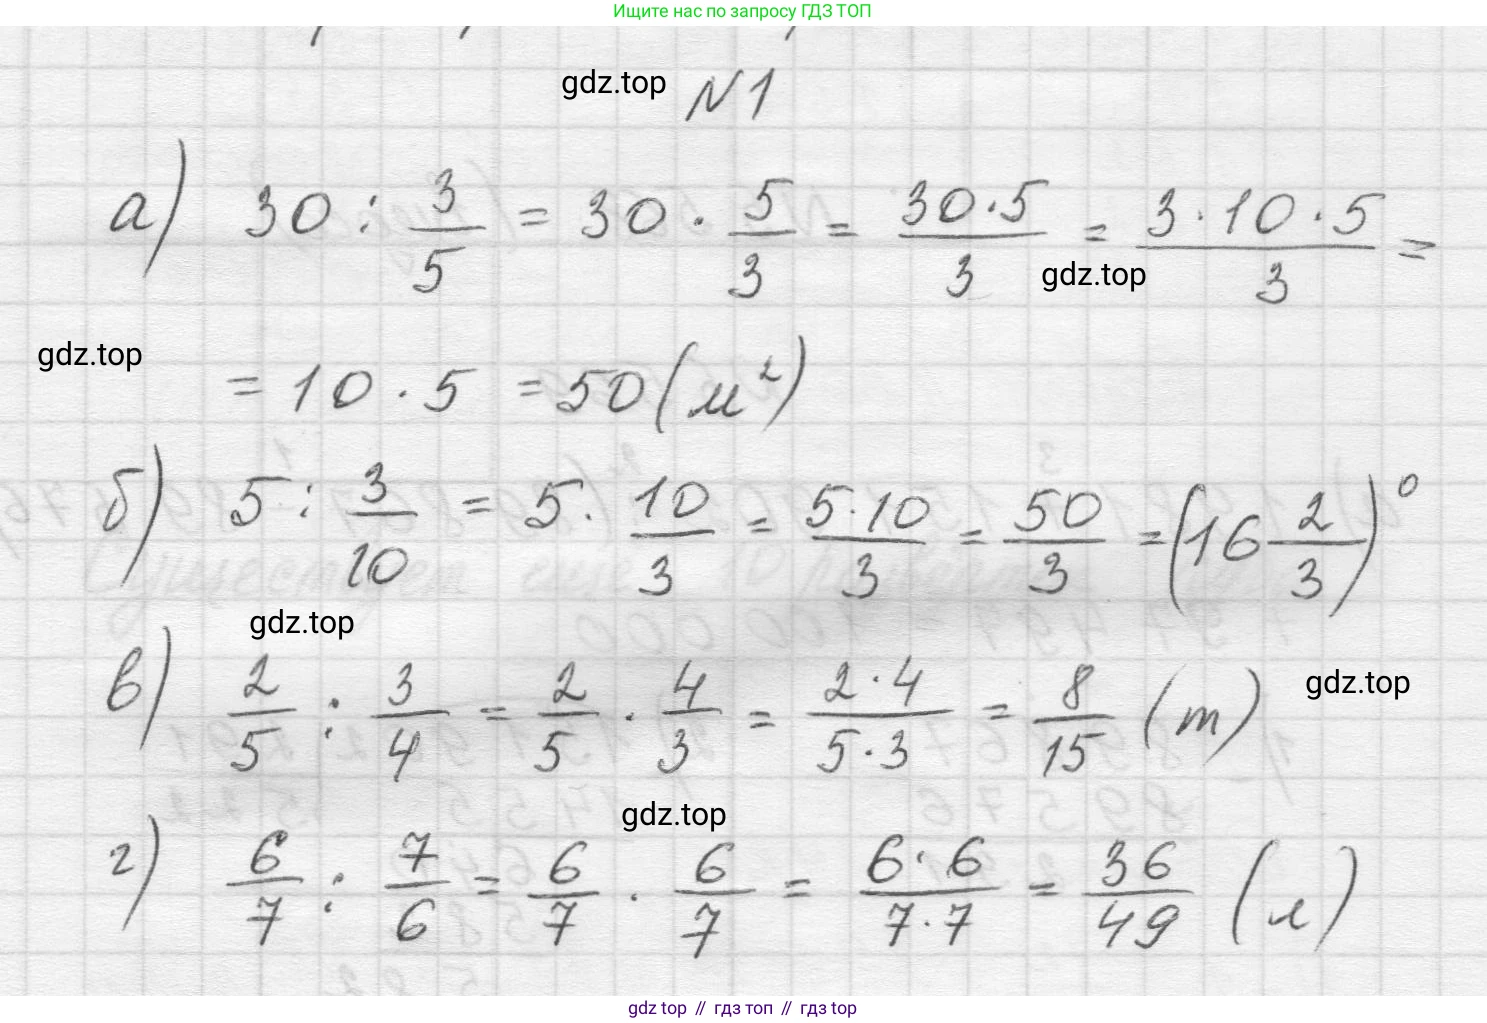 Ищите нас по запросу ГДЗ ТОП
gdz.top
N1
а) 30 : 3/5 = 30 · 5/3 = 30·5/3 = 3·10·5/3 =
gdz.top
gdz.top
= 10 · 5 = 50 (м²)
б) 5 : 3/10 = 5 · 10/3 = 5·10/3 = 50/3 = (16 2/3)⁰
gdz.top
в) 2/5 : 3/4 = 2/5 · 4/3 = 2·4/5·3 = 8/15 (т)
gdz.top
gdz.top
г) 6/7 : 7/6 = 6/7 · 6/7 = 6·6/7·7 = 36/49 (л)
gdz.top // гдз топ // гдз top